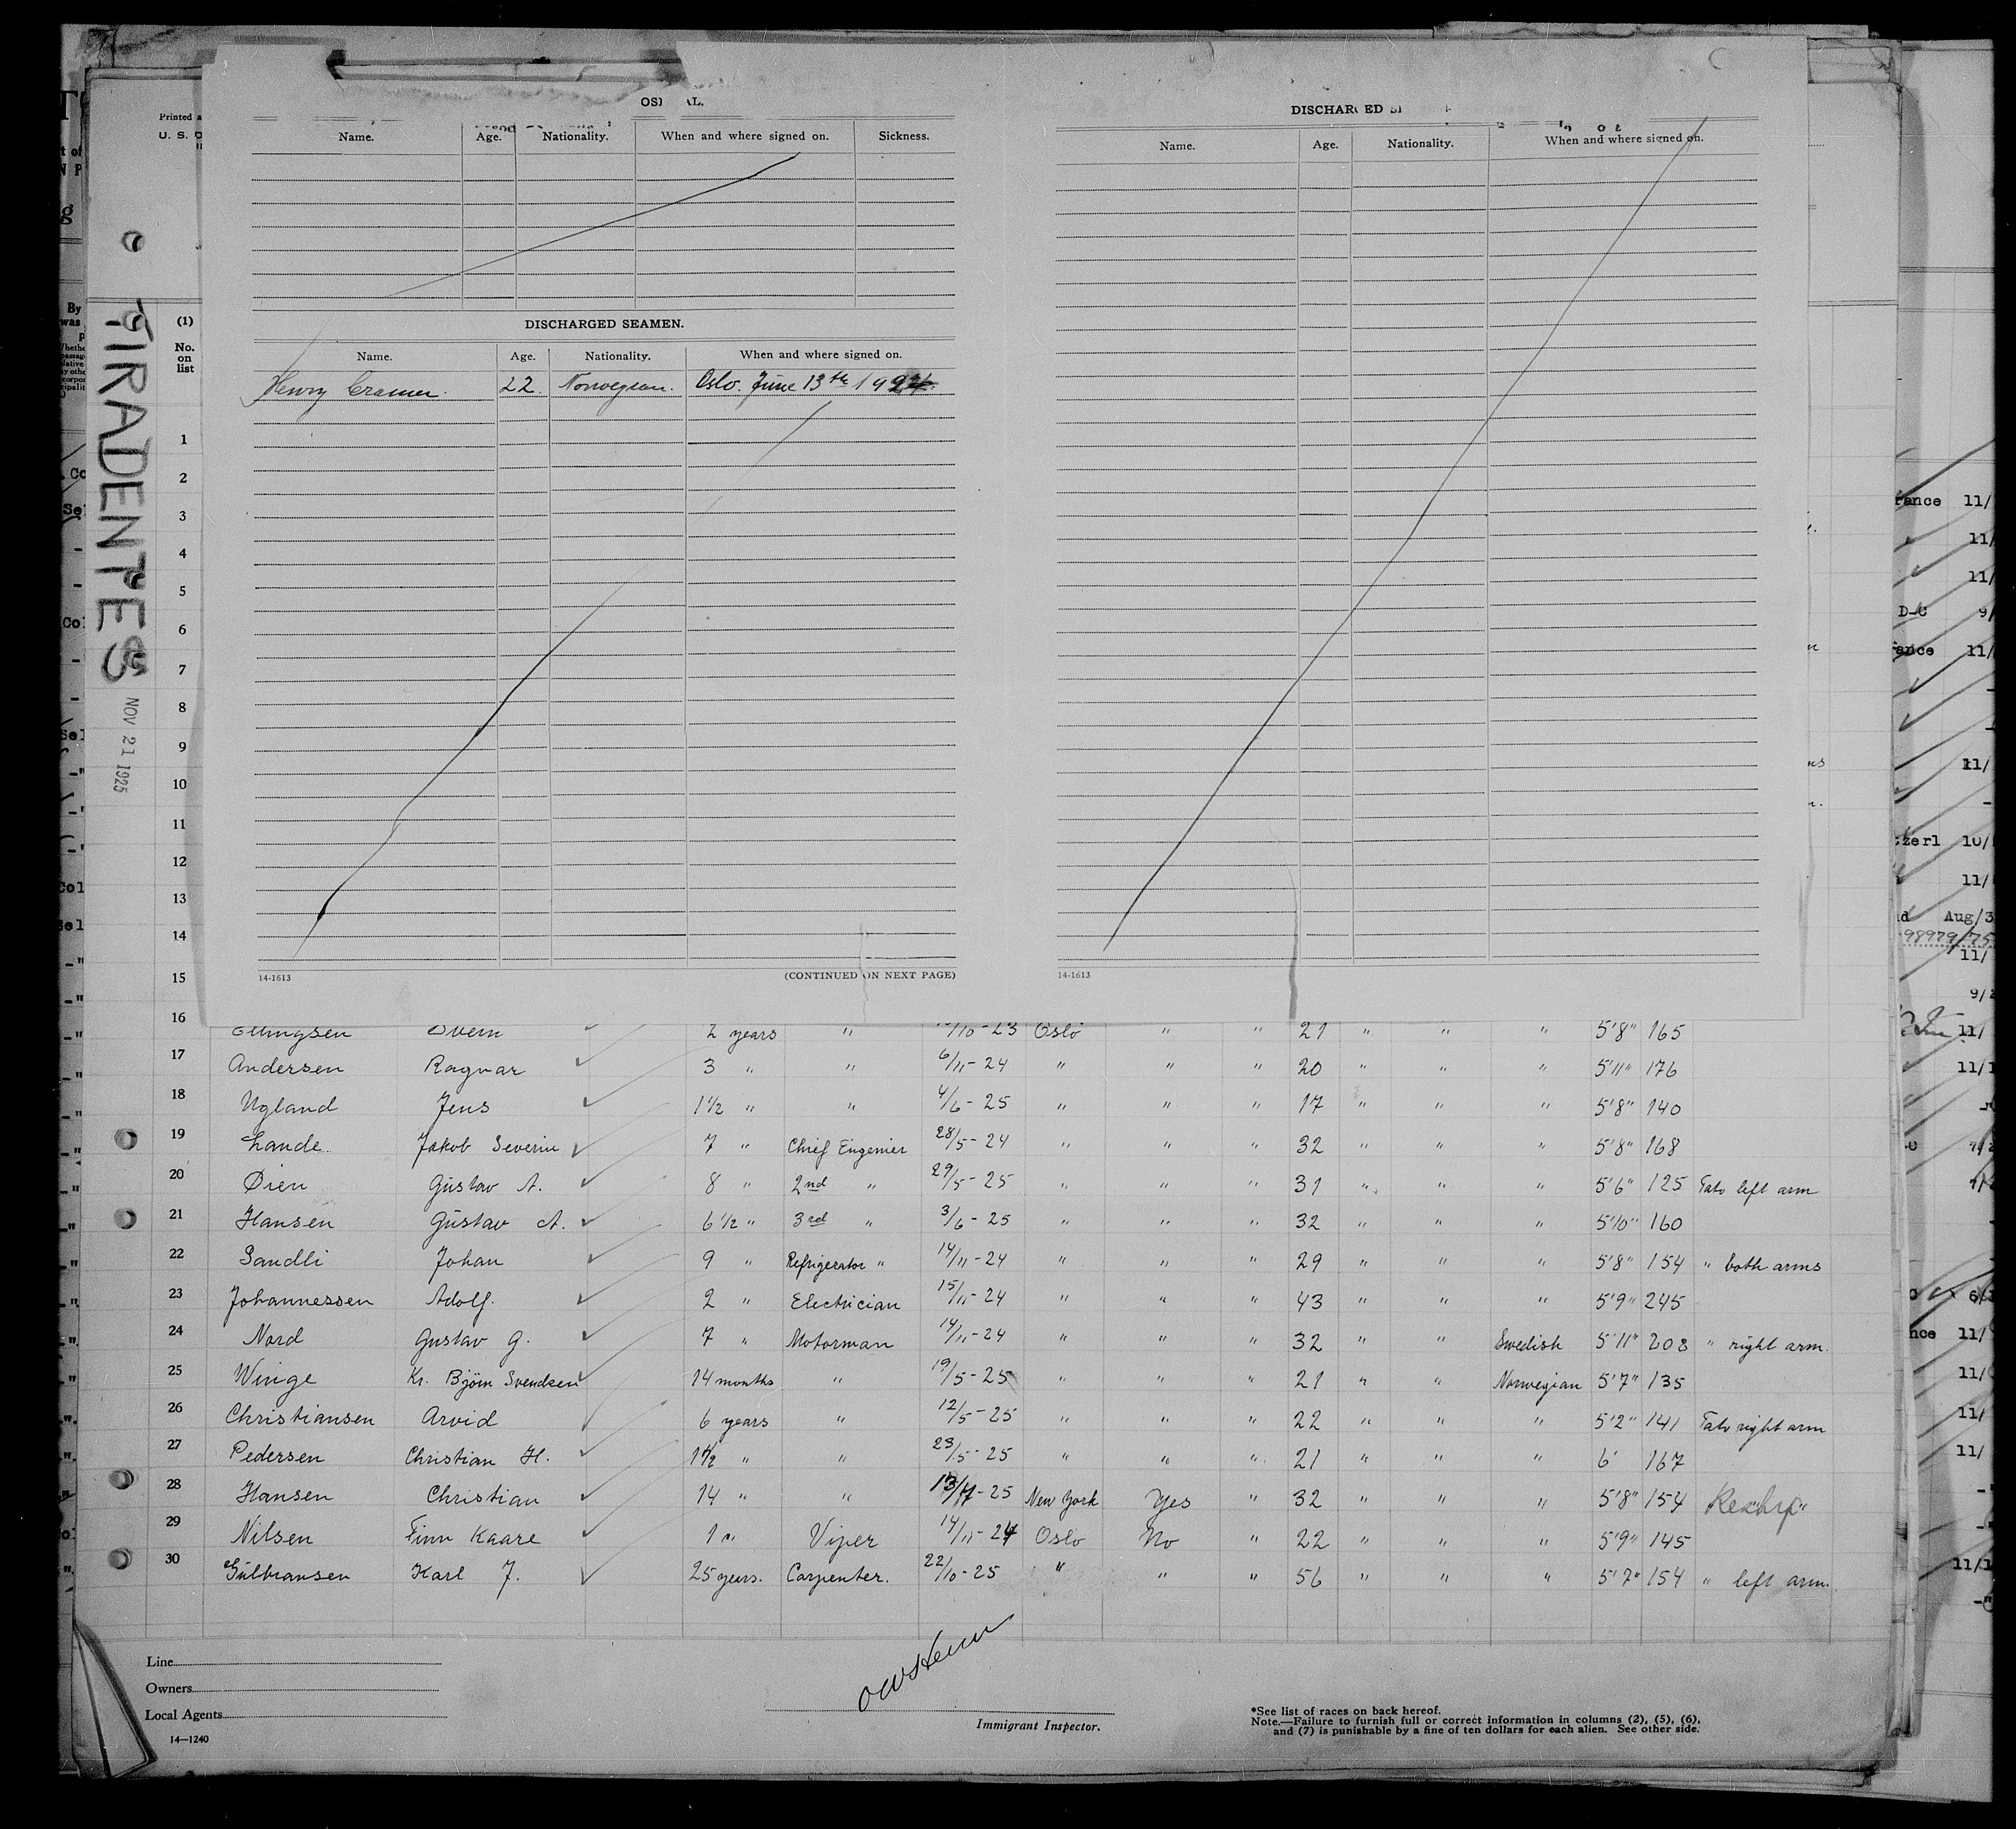 Printed
U. S.
TIRADENTES
NOV 21 1925
HOSPITAL.
Name. Age. Nationality. When and where signed on. Sickness.
DISCHARGED SEAMEN.
Name. Age. Nationality. When and where signed on.
Henry Cramer. 22. Norwegian. Oslo. June 13th 1924.
14-1613 (CONTINUED ON NEXT PAGE)
DISCHARGED
Name. Age. Nationality. When and where signed on.
14-1613
(1)
No. on list
1
2
3
4
5
6
7
8
9
10
11
12
13
14
15
16 Ellingsen 2 years " 10-23 Oslo " " 21 " " " 5'8" 165
17 Andersen Ragnar 3 " " 6/11-24 " " " 20 " " " 5'11" 176
18 Ugland Jens 1 1/2 " " 4/6-25 " " " 17 " " " 5'8" 140
19 Lande Jakob Severin 7 " Chief Engenier 28/5-24 " " " 32 " " " 5'8" 168
20 Øien Gustav A. 8 " 2nd " 29/5-25 " " " 31 " " " 5'6" 125 Tato left arm
21 Hansen Gustav A. 6 1/2 " 3rd " 3/6-25 " " " 32 " " " 5'10" 160
22 Sandli Johan 9 " Refrigerator " 14/11-24 " " " 29 " " " 5'8" 154 " both arms
23 Johannessen Adolf. 2 " Electrician 15/11-24 " " " 43 " " " 5'9" 245
24 Nord Gustav G. 7 " Motorman 14/11-24 " " " 32 " " Swedish 5'11" 203 " right arm.
25 Winge Kr. Bjørn Svendsen 14 months " 19/5-25 " " " 21 " " Norwegian 5'7" 135
26 Christiansen Arvid 6 years " 12/5-25 " " " 22 " " " 5'2" 141 Tato right arm
27 Pedersen Christian H. 1 1/2 " " 23/5-25 " " " 21 " " " 6' 167
28 Hansen Christian 14 " " 13/7-25 New York Yes " 32 " " " 5'8" 154
29 Nilsen Finn Kaare 1 " Viper 14/11-24 Oslo No " 22 " " " 5'9" 145
30 Gulbransen Karl J. 25 years. Carpenter. 22/10-25 " " " 56 " " " 5'7" 154 " left arm.
Line
Owners
Local Agents
14—1240
Immigrant Inspector.
*See list of races on back hereof.
Note.—Failure to furnish full or correct information in columns (2), (5), (6),
and (7) is punishable by a fine of ten dollars for each alien. See other side.